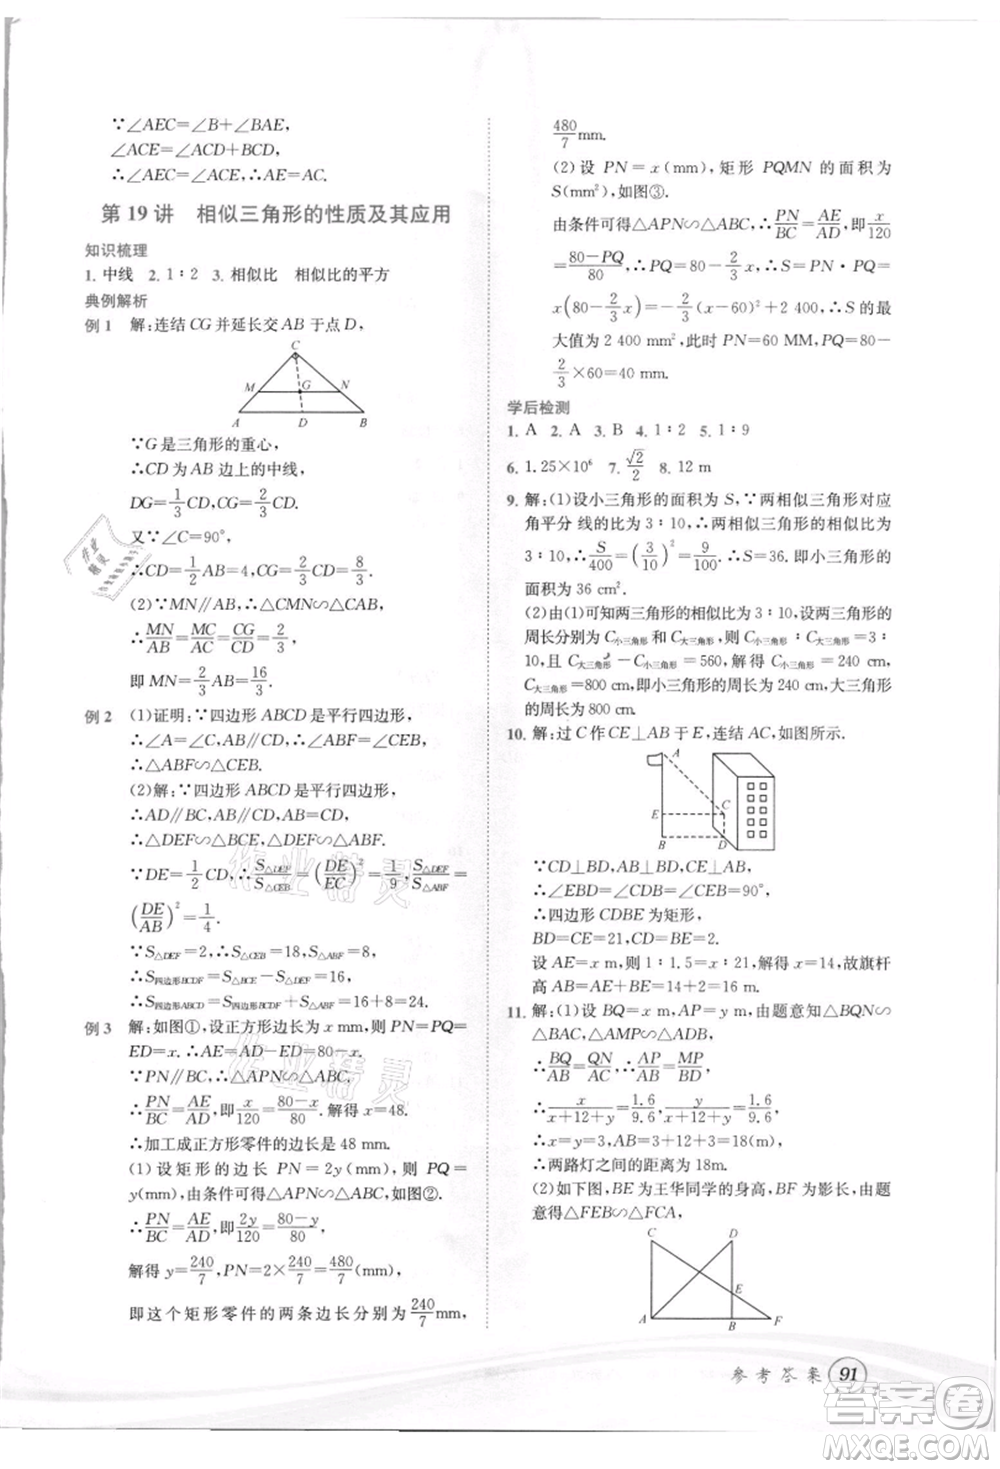 ∵∠AEC=∠B+∠BAE,
∠ACE=∠ACD+BCD,
∴∠AEC=∠ACE,∴AE=AC.
第 19 讲 相似三角形的性质及其应用
知识梳理
1. 中线 2. 1∶2 3. 相似比 相似比的平方
典例解析
例 1 解:连结 CG 并延长交 AB 于点 D,
C
M G N
A D B
∵G 是三角形的重心,
∴CD 为 AB 边上的中线,
DG=1/3CD,CG=2/3CD.
又∵∠C=90°,
∴CD=1/2AB=4,CG=2/3CD=8/3.
(2)∵MN∥AB,∴△CMN∽△CAB,
∴MN/AB=MC/AC=CG/CD=2/3,
即 MN=2/3AB=16/3.
例 2 (1)证明:∵四边形 ABCD 是平行四边形,
∴∠A=∠C,AB∥CD,∴∠ABF=∠CEB,
∴△ABF∽△CEB.
(2)解:∵四边形 ABCD 是平行四边形,
∴AD∥BC,AB∥CD,
∴△DEF∽△BCE,△DEF∽△ABF.
∵DE=1/2CD,∴S△DEF/S△CEB=(DE/EC)²=1/9,S△DEF/S△ABF=
(DE/AB)²=1/4.
∵S△DEF=2,∴S△CEB=18,S△ABF=8,
∴S四边形BCDF=S△BCE−S△DEF=16,
∴S四边形ABCD=S四边形BCDF+S△ABF=16+8=24.
例 3 解:如图①,设正方形边长为 x mm,则 PN=PQ=
ED=x.∴AE=AD−ED=80−x.
∵PN∥BC,∴△APN∽△ABC,
∴PN/BC=AE/AD,即x/120=80−x/80.解得 x=48.
∴加工成正方形零件的边长是 48 mm.
(1)设矩形的边长 PN=2y(mm),则 PQ=
y(mm),由条件可得△APN∽△ABC,如图②.
∴PN/BC=AE/AD,即2y/120=80−y/80,
解得 y=240/7,PN=2×240/7=480/7(mm),
即这个矩形零件的两条边长分别为240/7mm,
480/7mm.
(2)设 PN=x(mm),矩形 PQMN 的面积为
S(mm²),如图③,
由条件可得△APN∽△ABC,∴PN/BC=AE/AD,即x/120
=80−PQ/80,解得 PQ=80−2/3x.∴S=PN·PQ=
x(80−2/3x)=−2/3(x−60)²+2400,∴S 的最
大值为 2 400 mm²,此时 PN=60 MM,PQ=80−
2/3×60=40 mm.
学后检测
1. A 2. A 3. B 4. 1∶2 5. 1∶9
6. 1.25×10⁶ 7. √2/2 8. 12 m
9. 解:(1)设小三角形的面积为 S,∵两相似三角形对应
角平分 线的比为 3∶10,∴两相似三角形的相似比为
3∶10,∴S/400=(3/10)²=9/100,∴S=36.即小三角形的
面积为 36 cm².
(2)由(1)可知两三角形的相似比为 3∶10,设两三角形的
周长分别为 C小三角形和 C大三角形,则 C小三角形∶C大三角形=3∶
10,且 C大三角形−C小三角形=560,解得 C小三角形=240 cm,
C大三角形=800 cm,即小三角形的周长为 240 cm,大三角形
的周长为 800 cm.
10. 解:过 C 作 CE⊥AB 于 E,连结 AC,如图所示.
A
E C
B D
∵CD⊥BD,AB⊥BD,CE⊥AB,
∴∠EBD=∠CDB=∠CEB=90°,
∴四边形 CDBE 为矩形,
BD=CE=21,CD=BE=2.
设 AE=x m,则 1∶1.5=x∶21,解得 x=14,故旗杆
高 AB=AE+BE=14+2=16 m.
11. 解:(1)设 BQ=x m,AP=y m,由题意知△BQN∽
△BAC,△AMP∽△ABD,
∴BQ/AB=QN/AC,∴AP/AB=MP/BD,
∴x/x+12+y=1.6/9.6,y/x+12+y=1.6/9.6,
∴x=y=3,∴AB=3+12+3=18(m).
∴两路灯之间的距离为 18m.
(2)如下图,BE 为王华同学的身高,BF 为影长,由题
意得△FEB∽△FCA,
C D
E
A B F
参考答案 91
作业精灵
作业精灵
作业精灵
答案卷
MXQE.COM